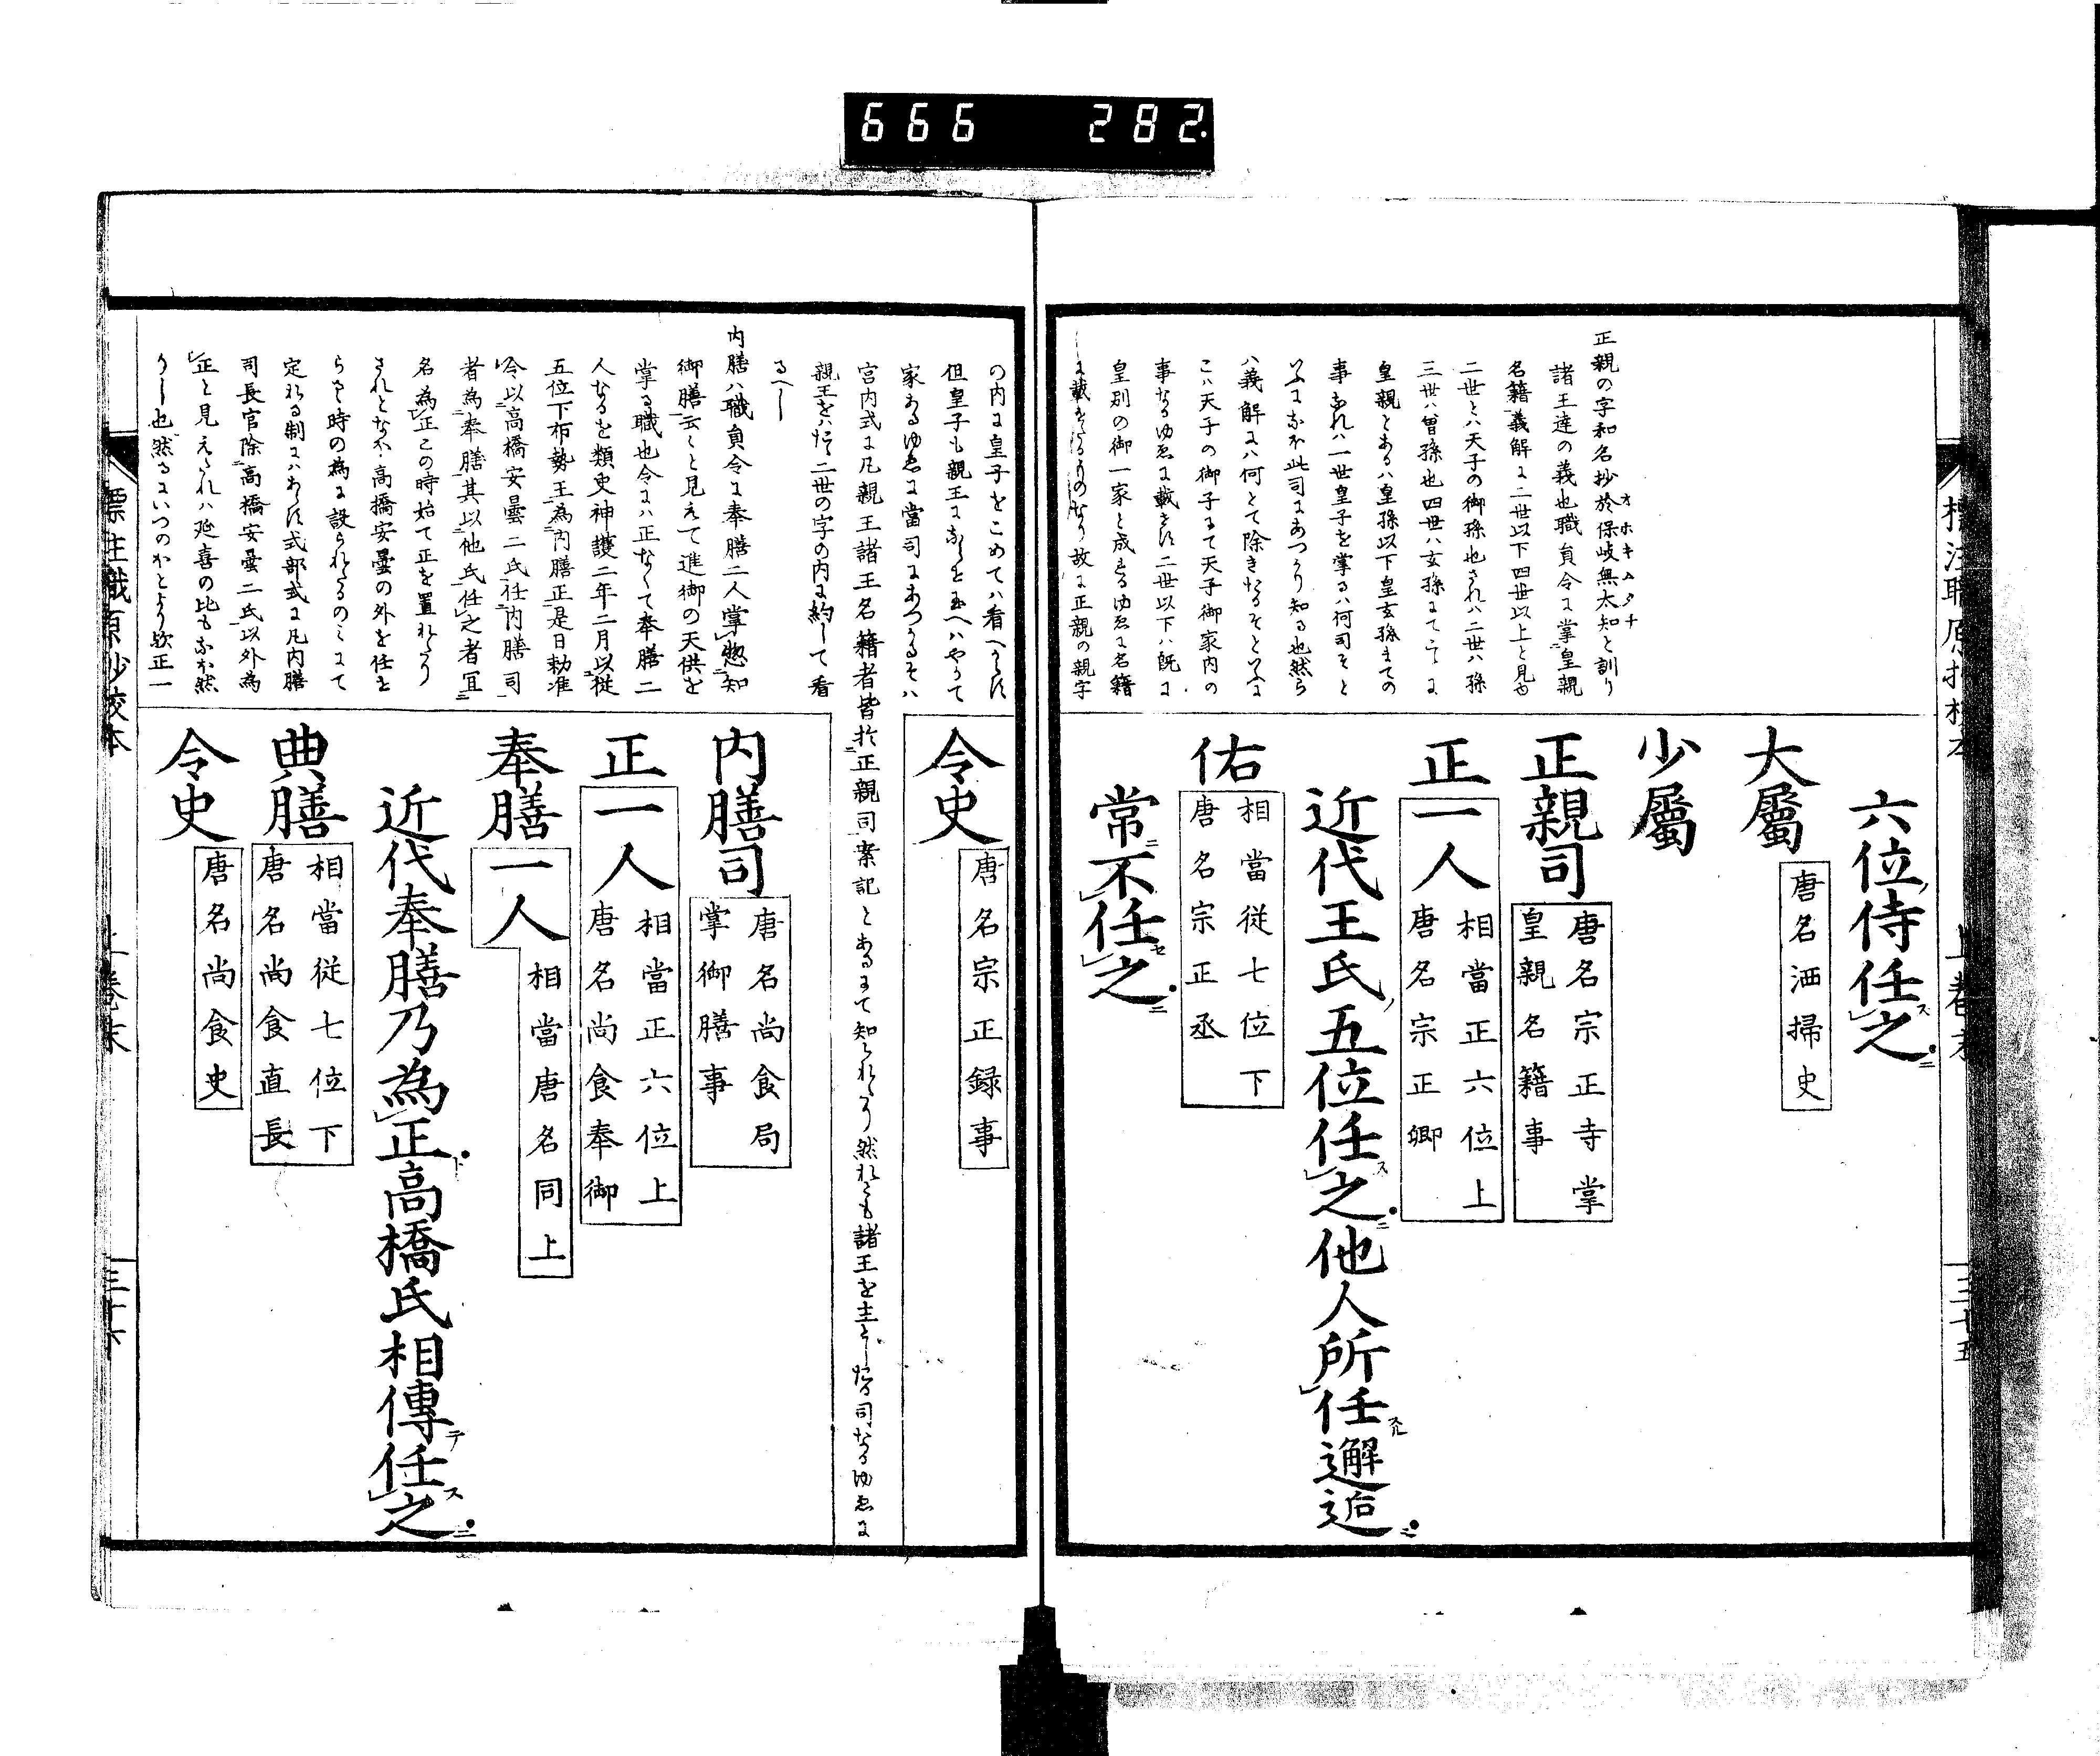 666 282.
標注職原抄校本
上巻末
三十五
正親の字和名抄於保岐無太知と訓り
オホキムタチ
諸王達の義也職員令に掌皇親
名籍義解に二世以下四世以上と見ゆ
二世とハ天子の御孫也されハ二世ハ孫
三世ハ曽孫也四世ハ玄孫まて
皇親とあるハ皇孫以下皇玄孫まての
事なれハ一世皇子を掌るハ何司そと
いふになほ此司にあつかり知る也然ら
ハ義解にハ何とて除きたるそといふに
こハ天子の御子にて天子御家内の
事なるゆゑに載せす二世以下ハ既に
皇別の御一家と成るゆゑに名籍
に載せたるものなり故に正親の親字
六位侍任之
大屬
唐名洒掃史
少屬
正親司
唐名宗正寺掌
皇親名籍事
正一人
相當正六位上
唐名宗正卿
近代王氏五位任之他人所任邂逅
佑
相當従七位下
唐名宗正丞
常不任之
の内に皇子をこめてハ看へからす
但皇子も親王になし玉へハやかて
家あるゆゑに當司にあつかるそハ
宮内式に凡親王諸王名籍者皆於正親司案記とあるにて知られたり然れとも諸王を主としたる司なるゆゑに
親王をハ二世の字の内に約して看
るへし
令史
唐名宗正録事
内膳ハ職員令に奉膳二人掌惣知
御膳云々と見えて進御の天供を
掌る職也令にハ正なくて奉膳二
人なるを類史神護二年二月以従
五位下布勢王為内膳正是日勅准
令以高橋安曇二氏任内膳司
者為奉膳其以他氏任之者宜
名為正この時始て正を置れたり
されとなほ高橋安曇の外を任せ
らるゝ時の為に設られたるのみにて
定れる制にハあらす式部式に凡内膳
司長官除高橋安曇二氏以外為
正と見えたれハ延喜の比もなほ然
りし也然るにいつのほとより歟正一
内膳司
唐名尚食局
掌御膳事
正一人
相當正六位上
唐名尚食奉御
奉膳一人
相當唐名同上
近代奉膳乃為正高橋氏相傳任之
典膳
相當従七位下
唐名尚食直長
令史
唐名尚食史
標注職原抄校本
上巻末
三十六